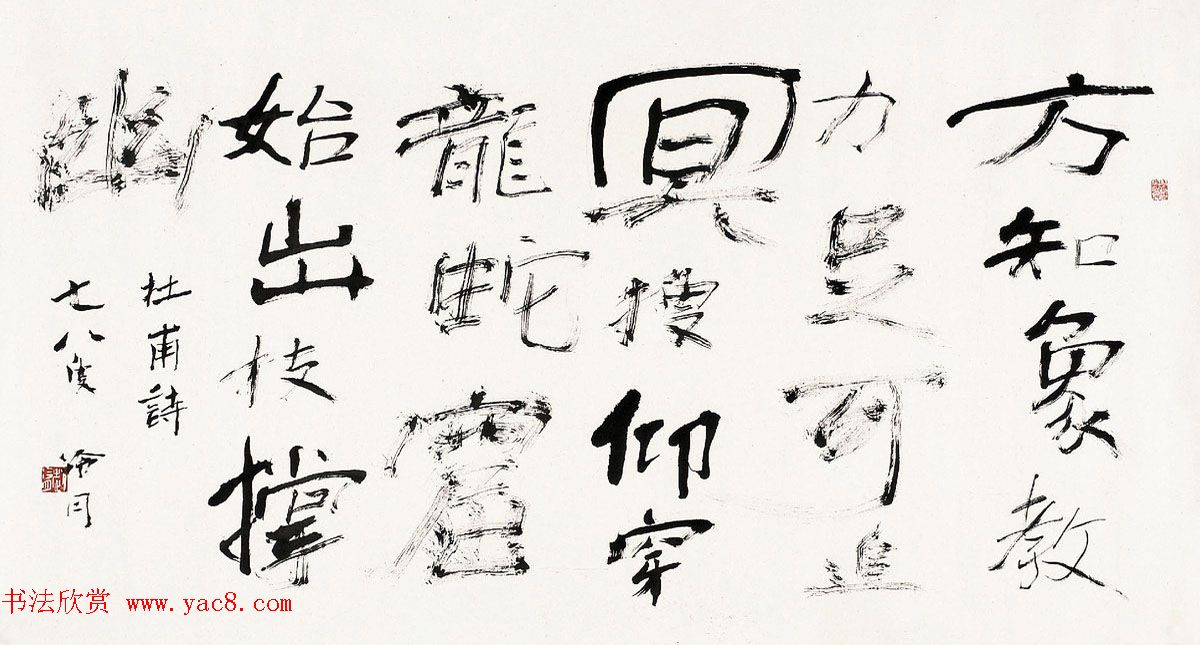 方知象教
力足可追
冥搜仰穿
龍蛇窟
始出枝撐
幽
杜甫詩
七八叟
书法欣赏 www.yac8.com